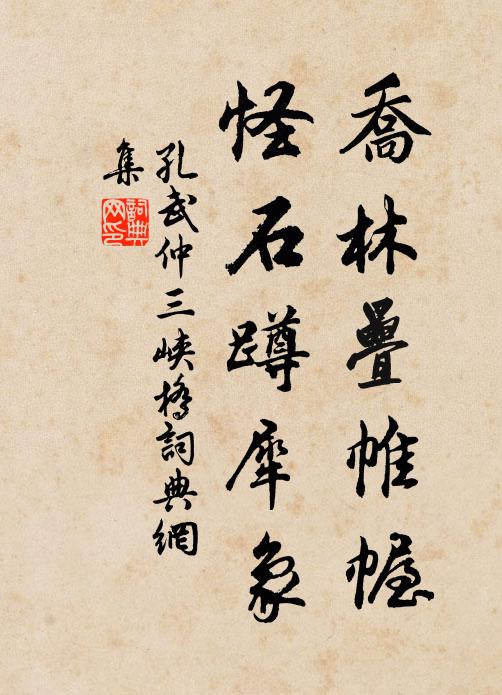 喬林疊帷幄
怪石蹲犀象
孔武仲三峽橋詞典網
集
詞典
网印